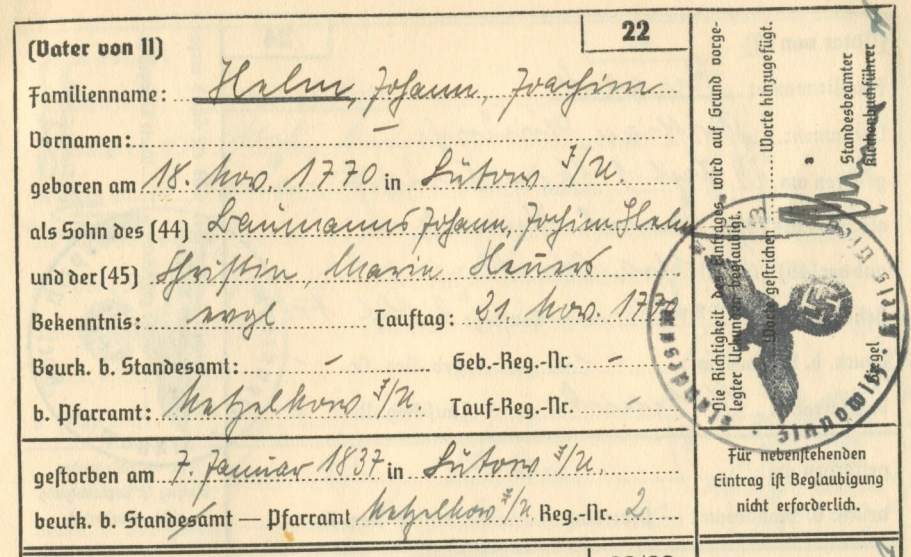 22
(Vater von 11)
Familienname: Helm, Johann, Joachim
Vornamen: –
geboren am 18. Nov. 1770 in Lütow /U.
als Sohn des (44) Johann, Jochim Helm
und der (45) Christin, Maria Heuers
Bekenntnis: evgl Tauftag: 21. Nov. 1770
Beurk. b. Standesamt: – Geb.-Reg.-Nr. –
b. Pfarramt: Netzelkow /U. Tauf-Reg.-Nr. –
gestorben am 7. Januar 1837 in Lütow /U.
beurk. b. Standesamt — Pfarramt Netzelkow /U. Reg.-Nr. 2
Die Richtigkeit des Eintrages wird auf Grund vorge-
legter Urkunden beglaubigt.
Worte gestrichen Worte hinzugefügt.
Standesbeamter
Kirchenbuchführer
Siegel
Für nebenstehenden
Eintrag ist Beglaubigung
nicht erforderlich.